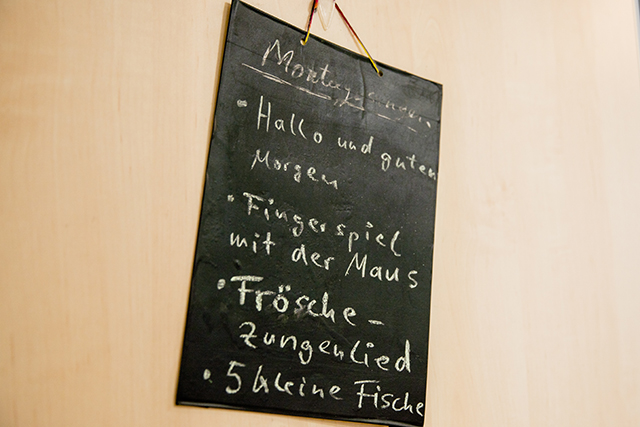 • Hallo und guten
Morgen
• Fingerspiel
mit der Maus
• Frösche-
zungenlied
• 5 kleine Fische